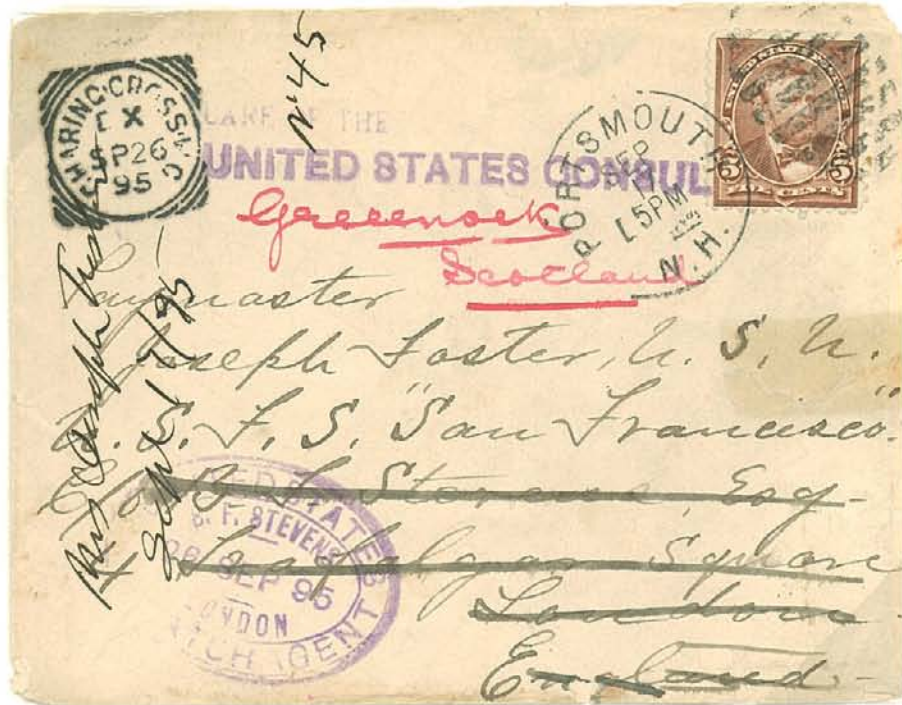 No 45
CHARING CROSS·W.C
E X
SP 26
95
CARE OF THE
UNITED STATES CONSUL
Greenock
Scotland
PORTSMOUTH
SEP
5 PM
N.H.
FIVE CENTS
Paymaster
Joseph Foster, U. S. N.
U. S. F. S. "San Francisco."
B. F. Stevens, Esq
4 Trafalgar Square
London
England
UNITED STATES
B. F. STEVENS
26 SEP 95
LONDON
DESPATCH AGENT
Mrs Joseph
Sept 1 /95